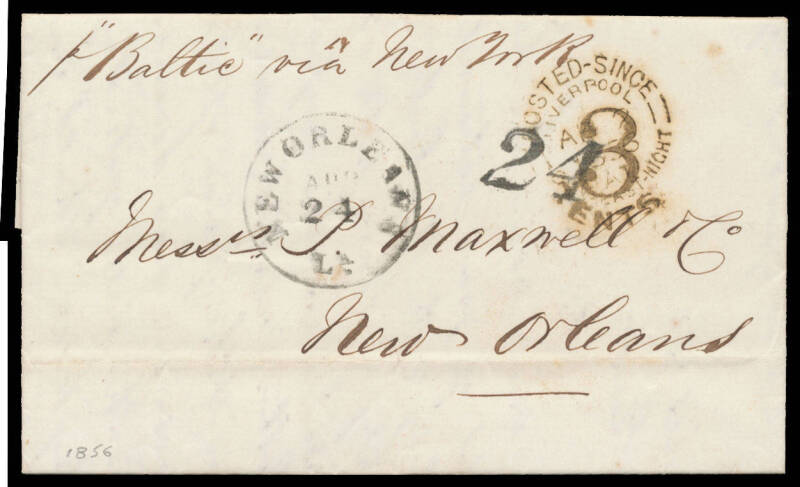 p "Baltic" via New York
POSTED-SINCE
LIVERPOOL
LAST-NIGHT
24
3
CENTS
NEW ORLEANS
APR
24
LA
Messrs P Maxwell & Co
New Orleans
1856